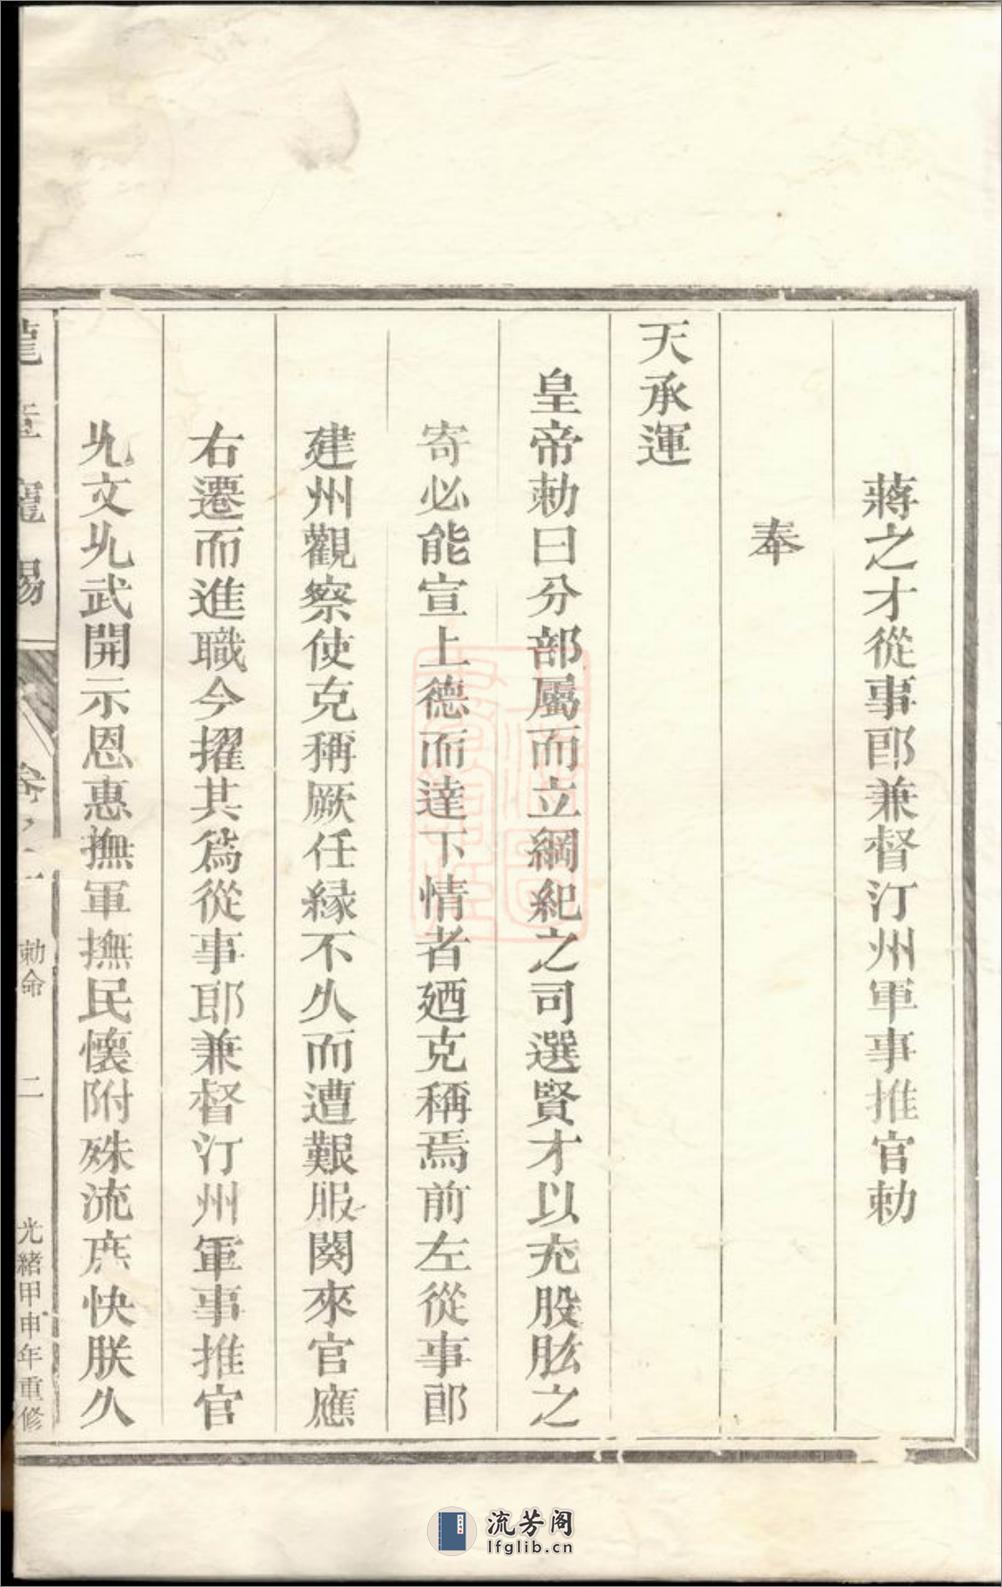 蔣之才從事郎兼督汀州軍事推官勅
奉
天承運
皇帝勅曰分部屬而立綱紀之司選賢才以充股肱之
寄必能宣上德而達下情者廼克稱焉前左從事郎
建州觀察使克稱厥任緣不久而遭艱服闋來官應
右遷而進職今擢其爲從事郎兼督汀州軍事推官
允文允武開示恩惠撫軍撫民懷附殊流庶快朕久
龍章寵錫
卷之一 勅命 二 光緒甲申年重修
流芳阁
lfglib.cn